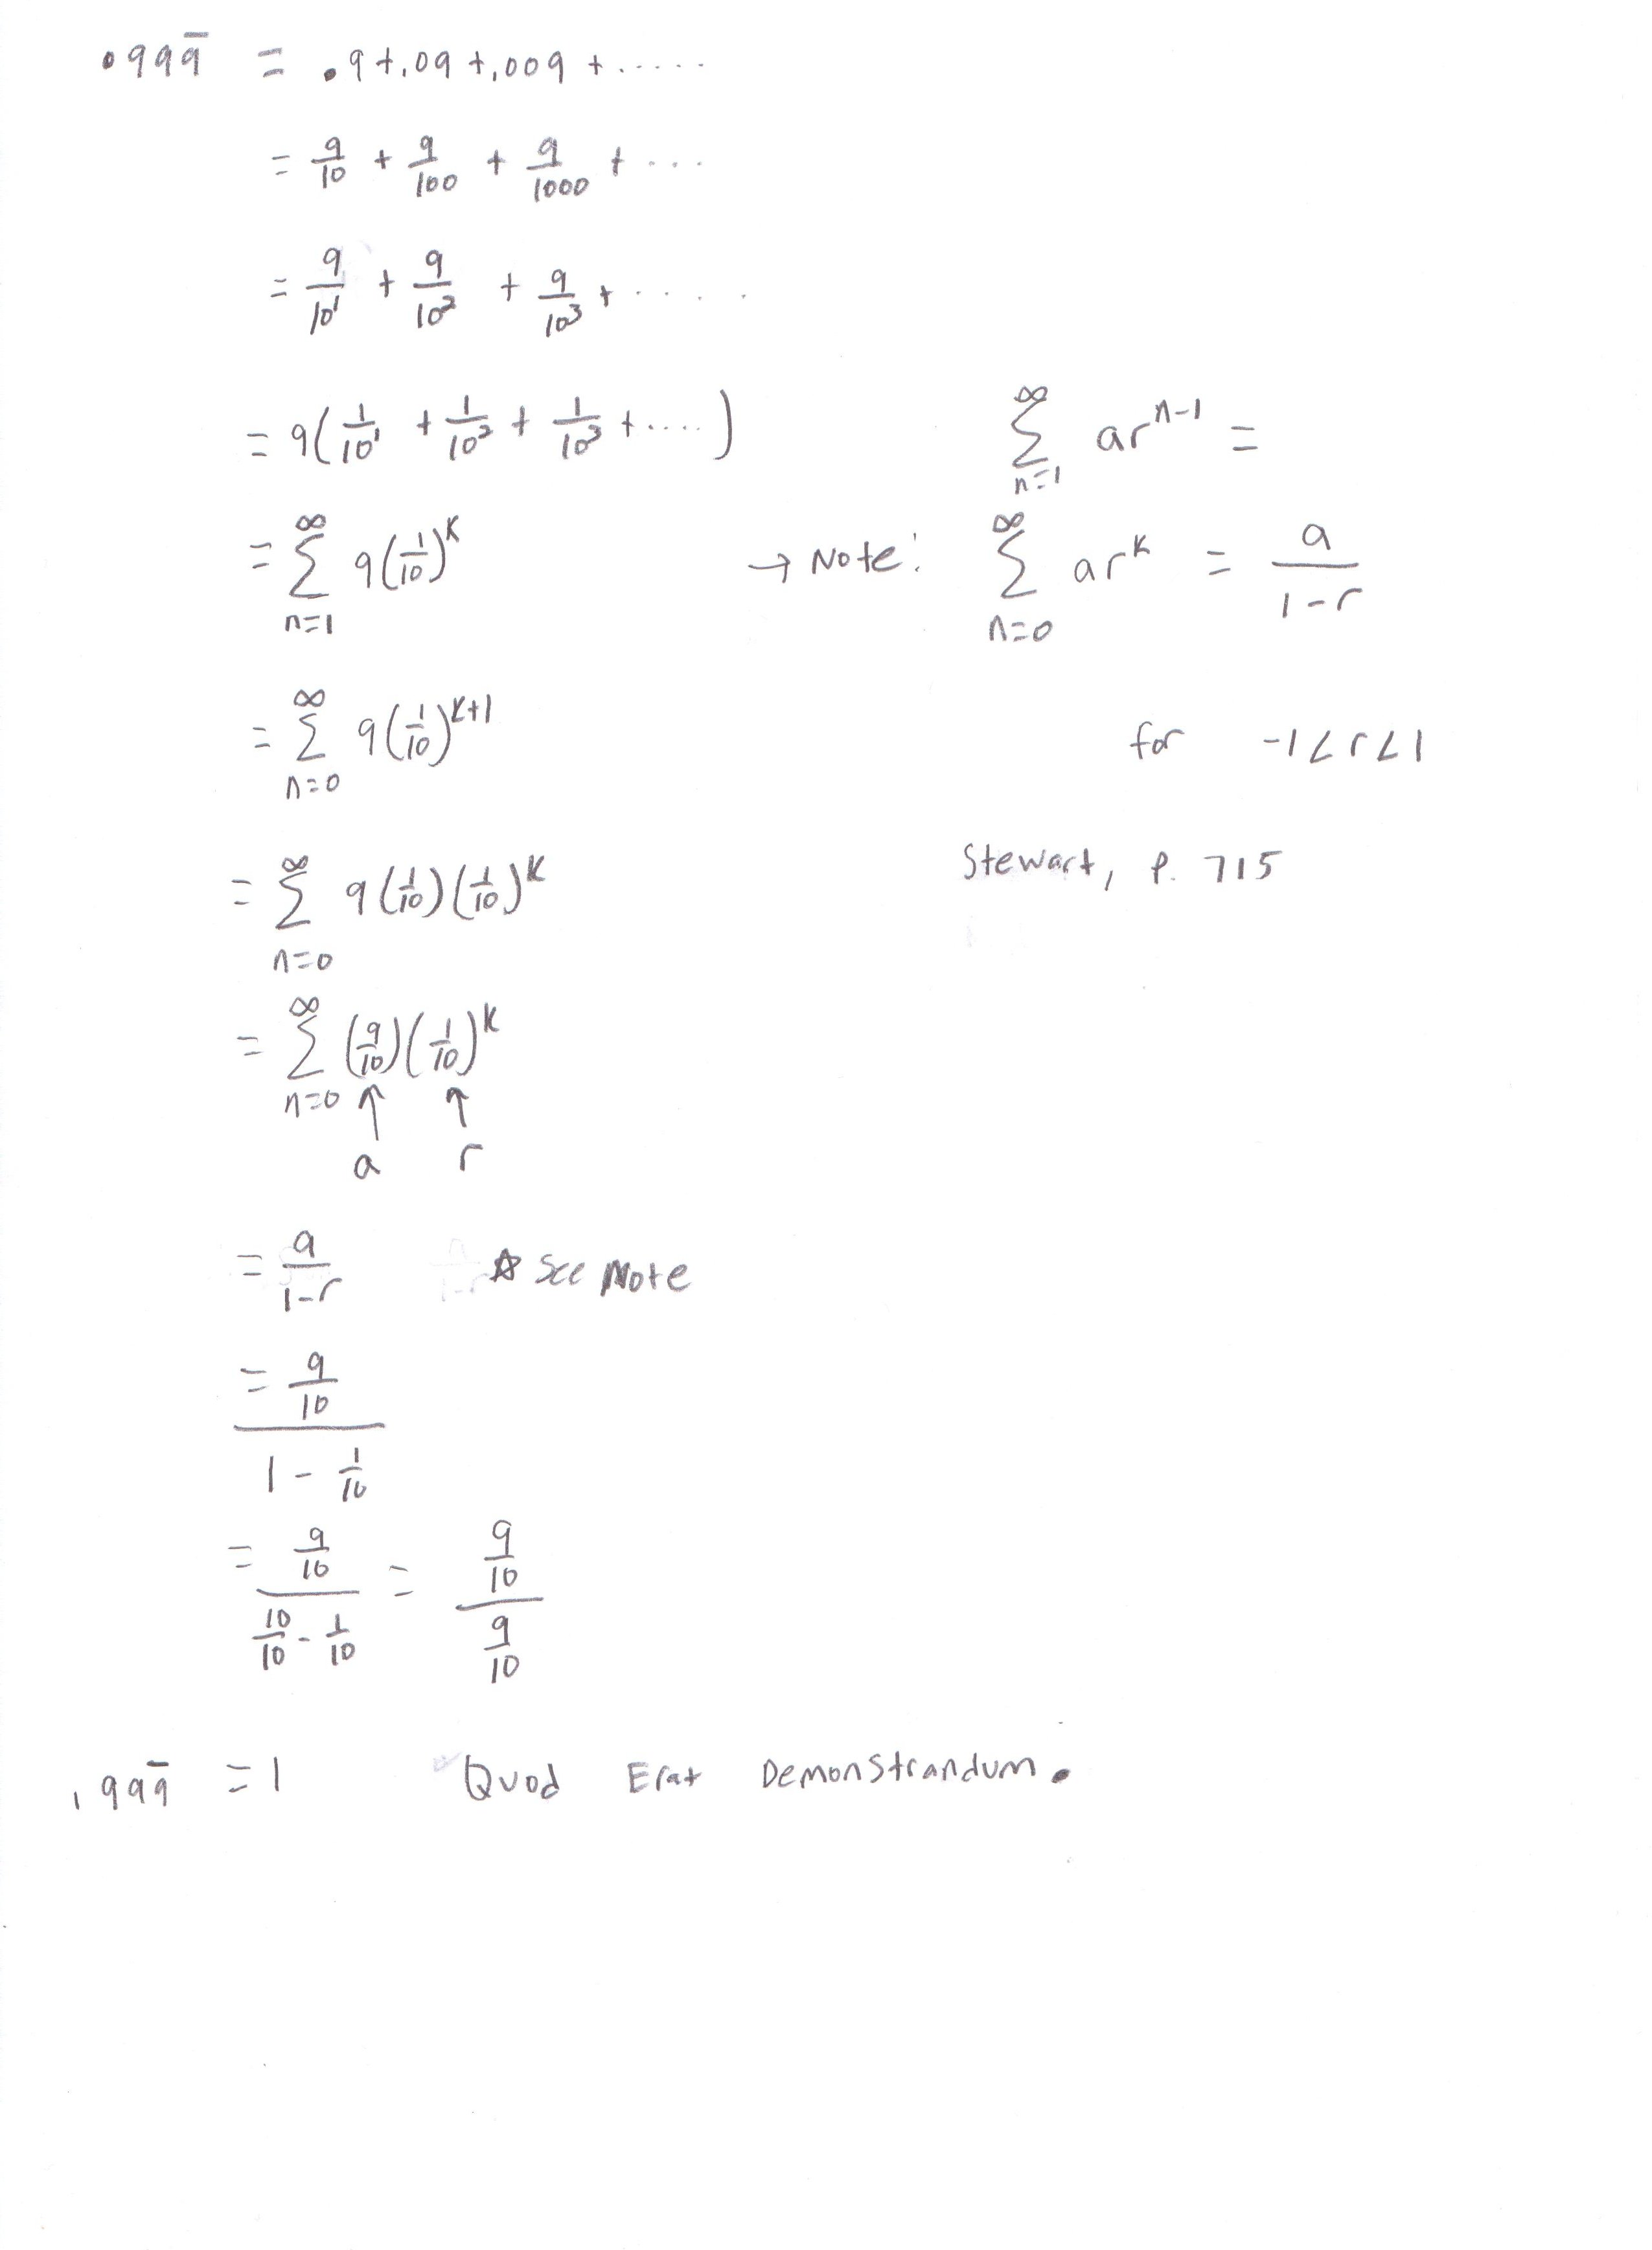 .999̅ = .9+.09+.009+.....
= 9/10 + 9/100 + 9/1000 + ....
= 9/10¹ + 9/10² + 9/10³ + .....
= 9(1/10¹ + 1/10² + 1/10³ + ....)
∞Σn=1 arⁿ⁻¹ =
= ∞Σn=1 9(1/10)ᴷ
→ Note: ∞Σn=0 arᵏ = a/(1-r)
= ∞Σn=0 9(1/10)ᴷ⁺¹
for -1<r<1
= ∞Σn=0 9(1/10)(1/10)ᴷ
Stewart, P. 715
= ∞Σn=0 (9/10)(1/10)ᴷ
↑ ↑
a r
= a/(1-r) ☆ See Note
= (9/10)/(1 - 1/10)
= (9/10)/(10/10 - 1/10) = (9/10)/(9/10)
.999̅ = 1 Quod Erat Demonstrandum.